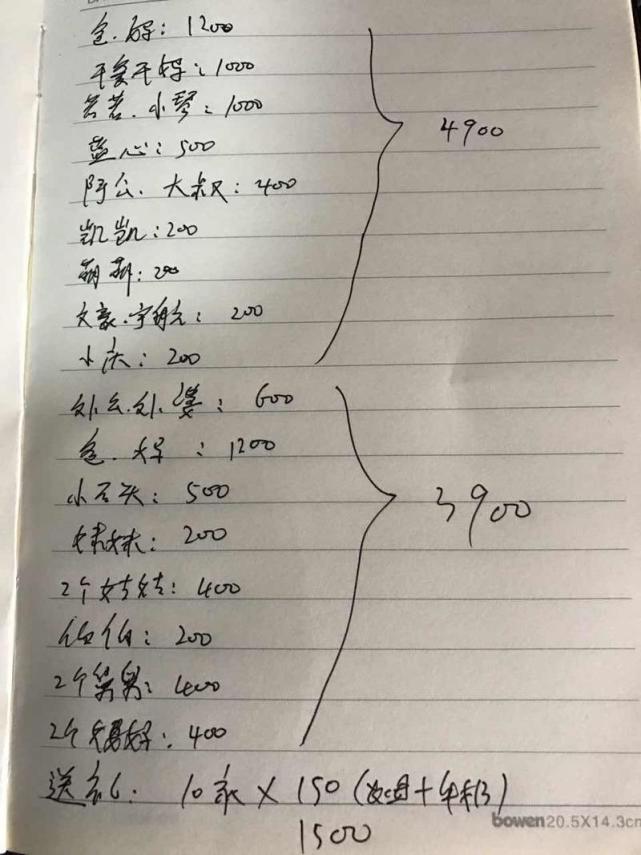 爸.妈：1200
干爹干妈：1000
若若.小琴：1000
蓝心：500
阿公.大叔：400
4900
凯凯：200
萌萌：200
文豪.宇航：200
小庆：200
外公.外婆：600
爸.妈：1200
小石头：500
3900
妹妹：200
2个姑姑：400
伯伯：200
2个舅舅：400
2个舅妈：400
送礼：10家×150（烟+牛奶）
1500
bowen20.5X14.3cm